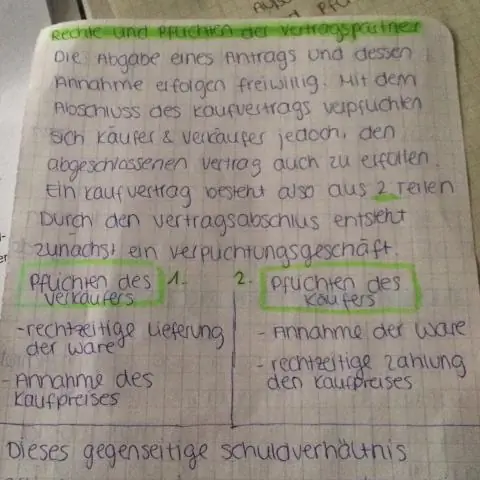 Rechte und Pflichten der Vertragspartner
Die Abgabe eines Antrags und dessen
Annahme erfolgen freiwillig. Mit dem
Abschluss des Kaufvertrags verpflichten
sich Käufer & Verkäufer jedoch, den
abgeschlossenen Vertrag auch zu erfüllen.
Ein Kaufvertrag besteht also aus 2 Teilen
Durch den Vertragsabschluss entsteht
zunächst ein Verpflichtungsgeschäft.
Pflichten des
Verkäufers
1.
- rechtzeitige Lieferung
der Ware
- Annahme des
Kaufpreises
2.
Pflichten des
Käufers
- Annahme der Ware
- rechtzeitige Zahlung
den Kaufpreises
Dieses gegenseitige Schuldverhältnis